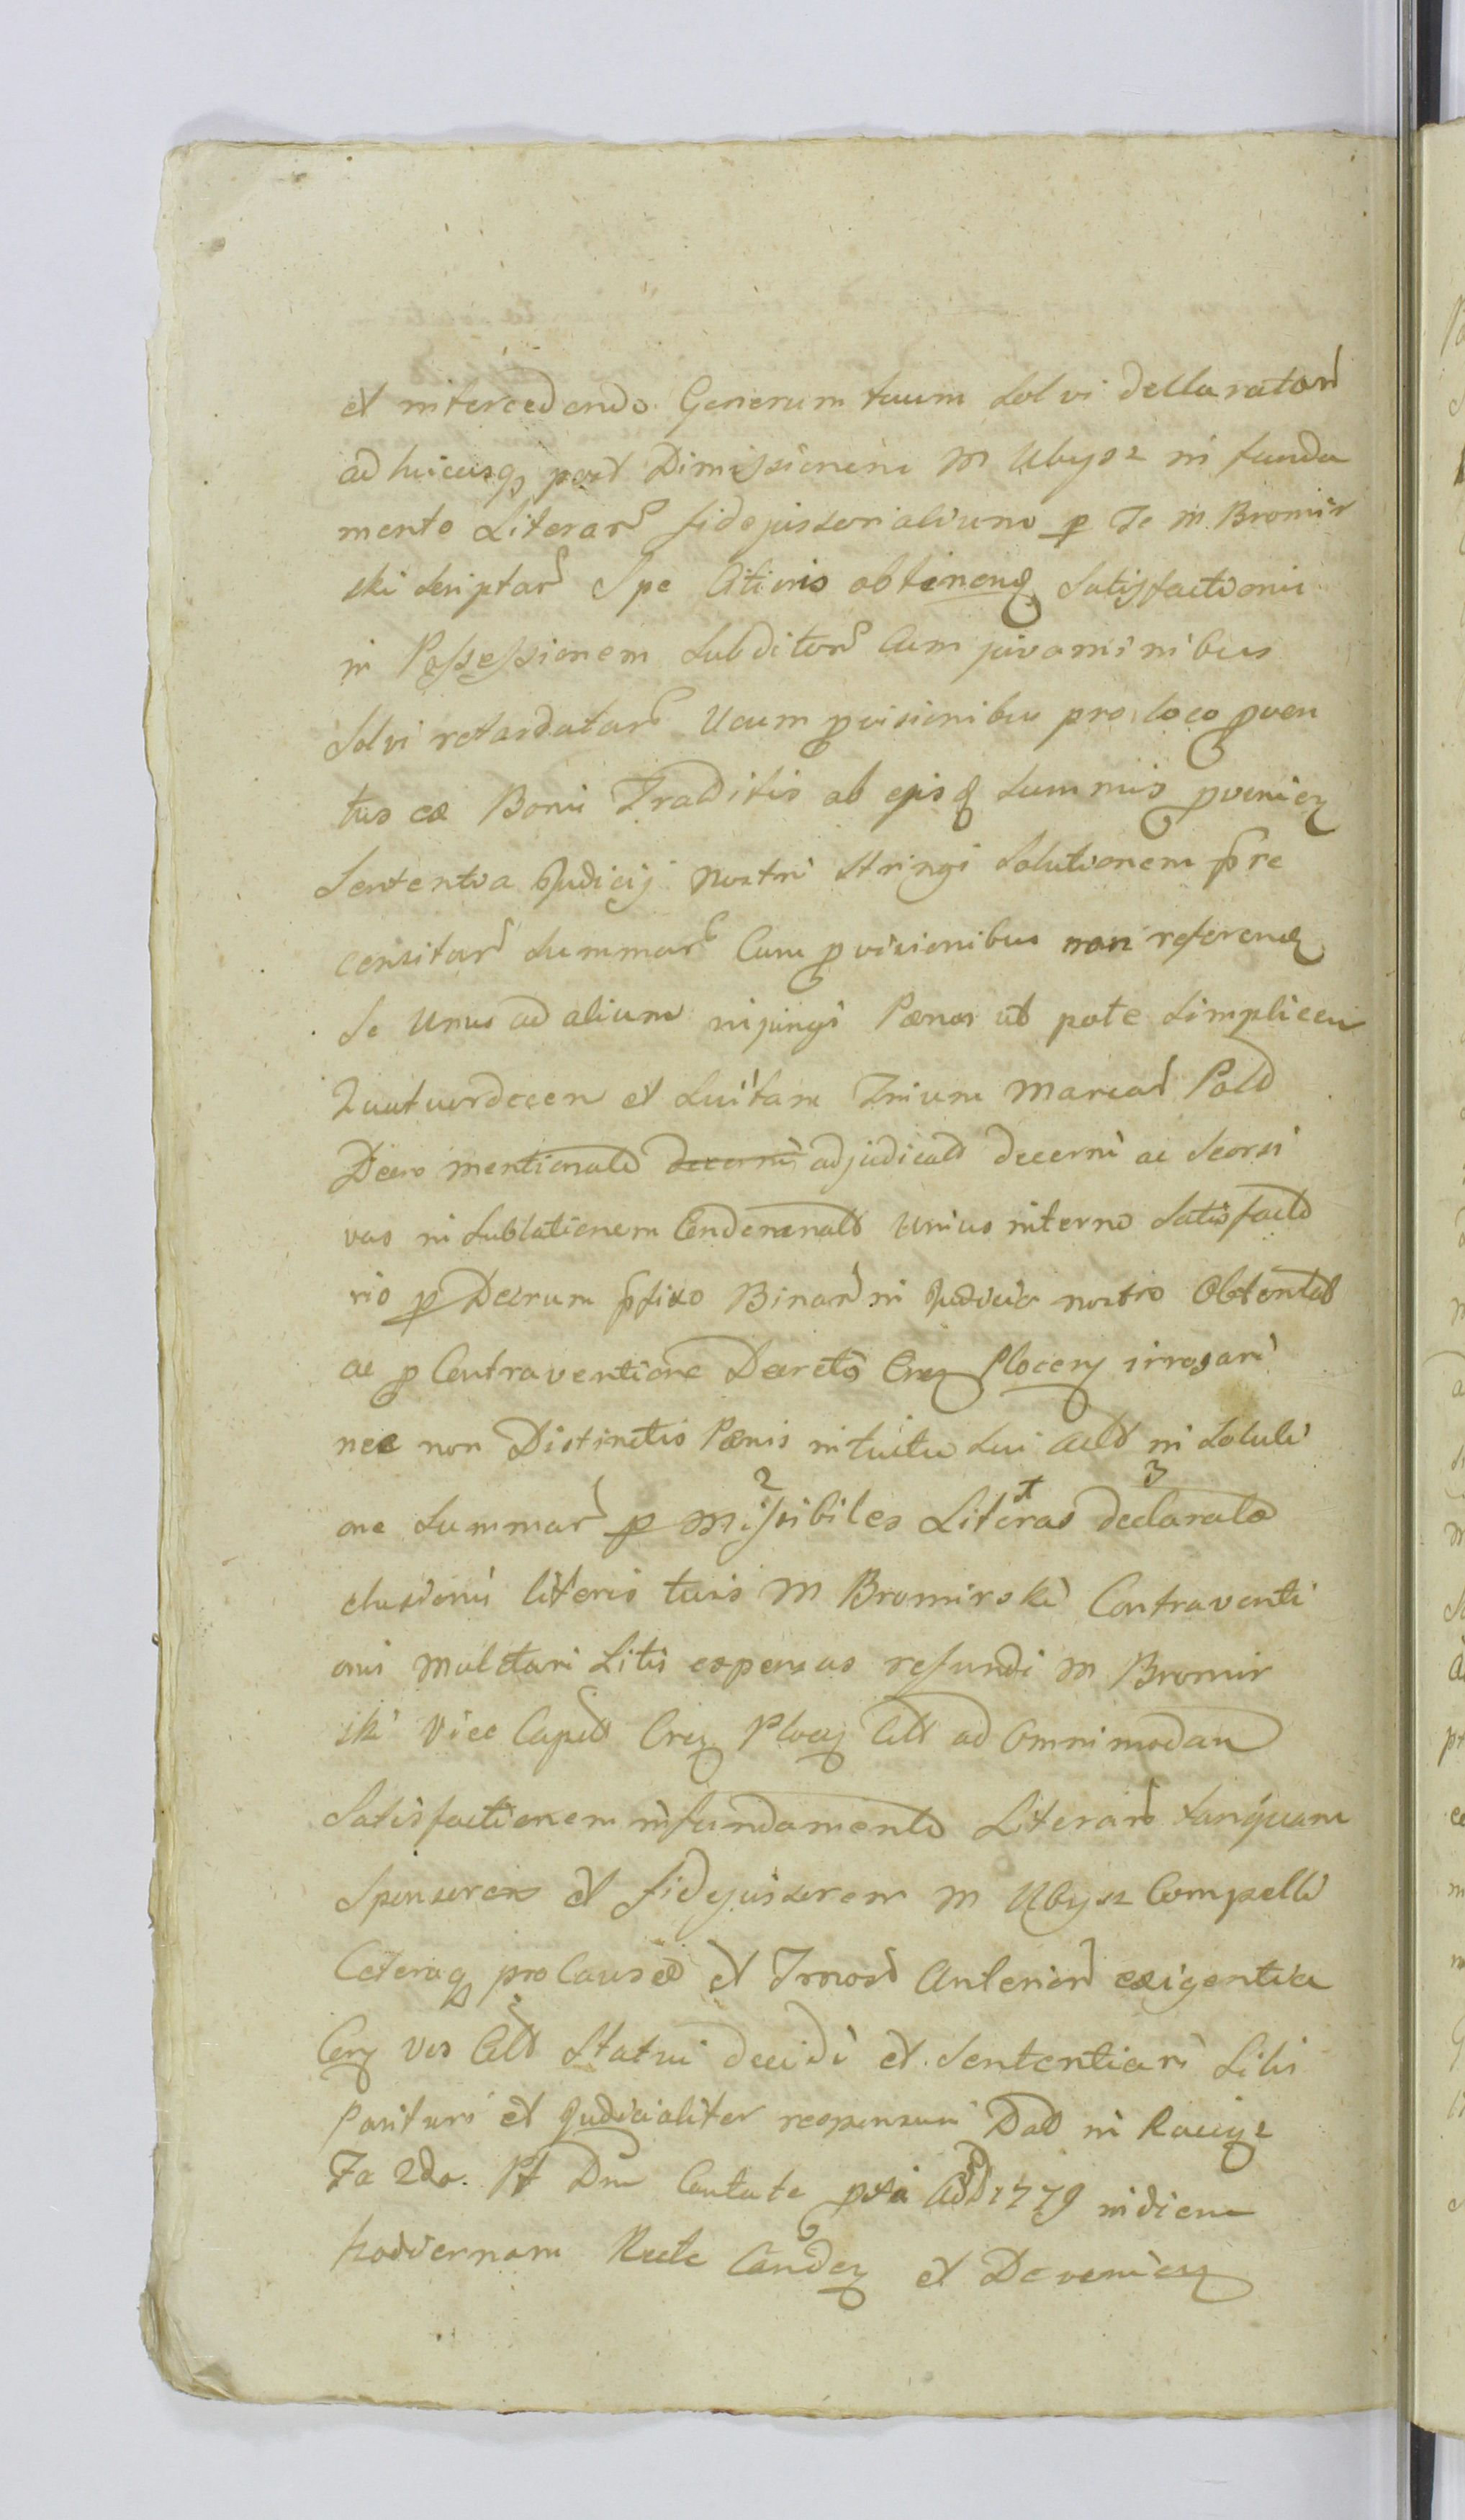 et intercedendo Generum tuum Solvi dellarator
ad huicusq post Dimissionem M Ubysz in funda
mento Literar fidejussorialium p Te M Bromir
ski Scriptar Spe Citius obtinend Satisfactionis
in Possessionem Subditor Cum juvaminibus
Solvi retardatar Ucum pvisionibus pro loco pven
tus ex Bonis Traditis ab ejsq Summis pvenien
Sententia Judicij nostri Stringi Solutionem pre
censitar Summar Cum pvisionibus non referend
Se Unus ad alium injungi Pænas ut pote Simplicem
Quatuordecem et Luitam Trium Marcar Pold
Decro mentionald decerni adjudicald decerni ac Seorsi
vas in Sublationem Condemnald Unius interno Satisfacto
rio p Decrum pfixo Binar in Judicio nostro Obtentd
ac p Contraventione Decreto Cren Plocen irrogari
nec non Distinctis Pænis intuitu Sui Actd in Soluti
one Summar p Missibiles Literas declarato
elusionis literis tuis M Bromirski Contraventi
onis Mulctari Litis expensas refundi M Bromir
ski Vice Capit Cren Plocen Citt ad Omnimodam
Satisfactionem in fundamento Literar tanquam
Sponsorem et fidejussorem M Ubysz Compelli
Ceteraq pro Causæ et Tmor Anterior exigentia
Cern vos Citt Statui decidi et Sententiari Sitis
Parituri et Judicialiter responsuri Dat in Raciąż
Fa 2da. Pt Dnm Cantate pxia Add 1779 in diem
hodiernam Recte Canden et Devenien